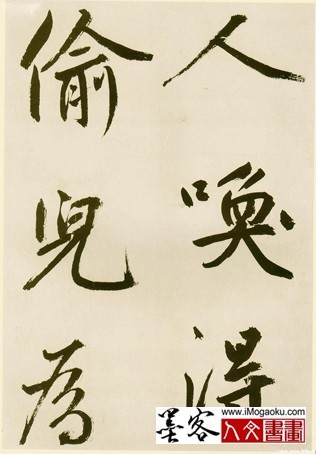 人喚得
偷兒為
墨客
www.iMogaoku.com
人文書畫